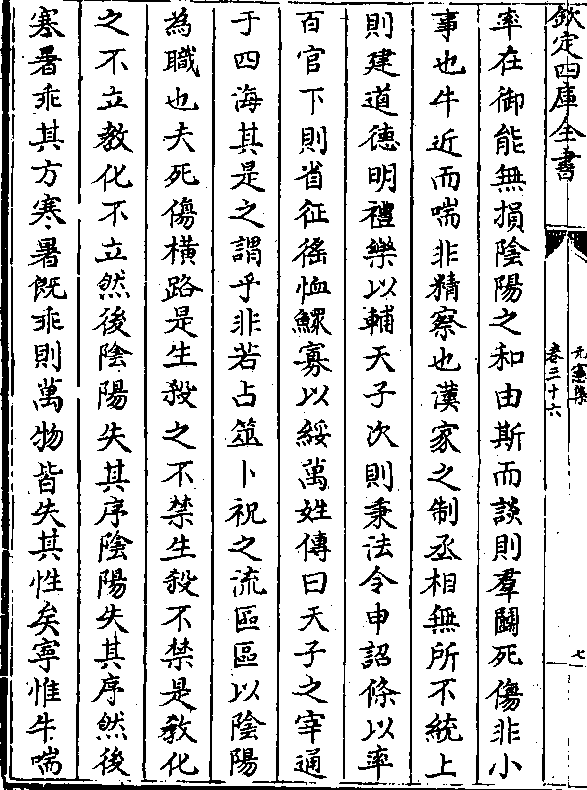 欽定四庫全書
元憲集
卷三十六
七
率在御能無損陰陽之和由斯而談則羣鬭死傷非小
事也牛近而喘非精察也漢家之制丞相無所不統上
則建道德明禮樂以輔天子次則秉法令申詔條以率
百官下則省征徭恤鰥寡以綏萬姓傳曰天子之宰通
于四海其是之謂乎非若占筮卜祝之流區區以陰陽
為職也夫死傷橫路是生殺之不禁生殺不禁是教化
之不立教化不立然後陰陽失其序陰陽失其序然後
寒暑乖其方寒暑既乖則萬物皆失其性矣寧惟牛喘